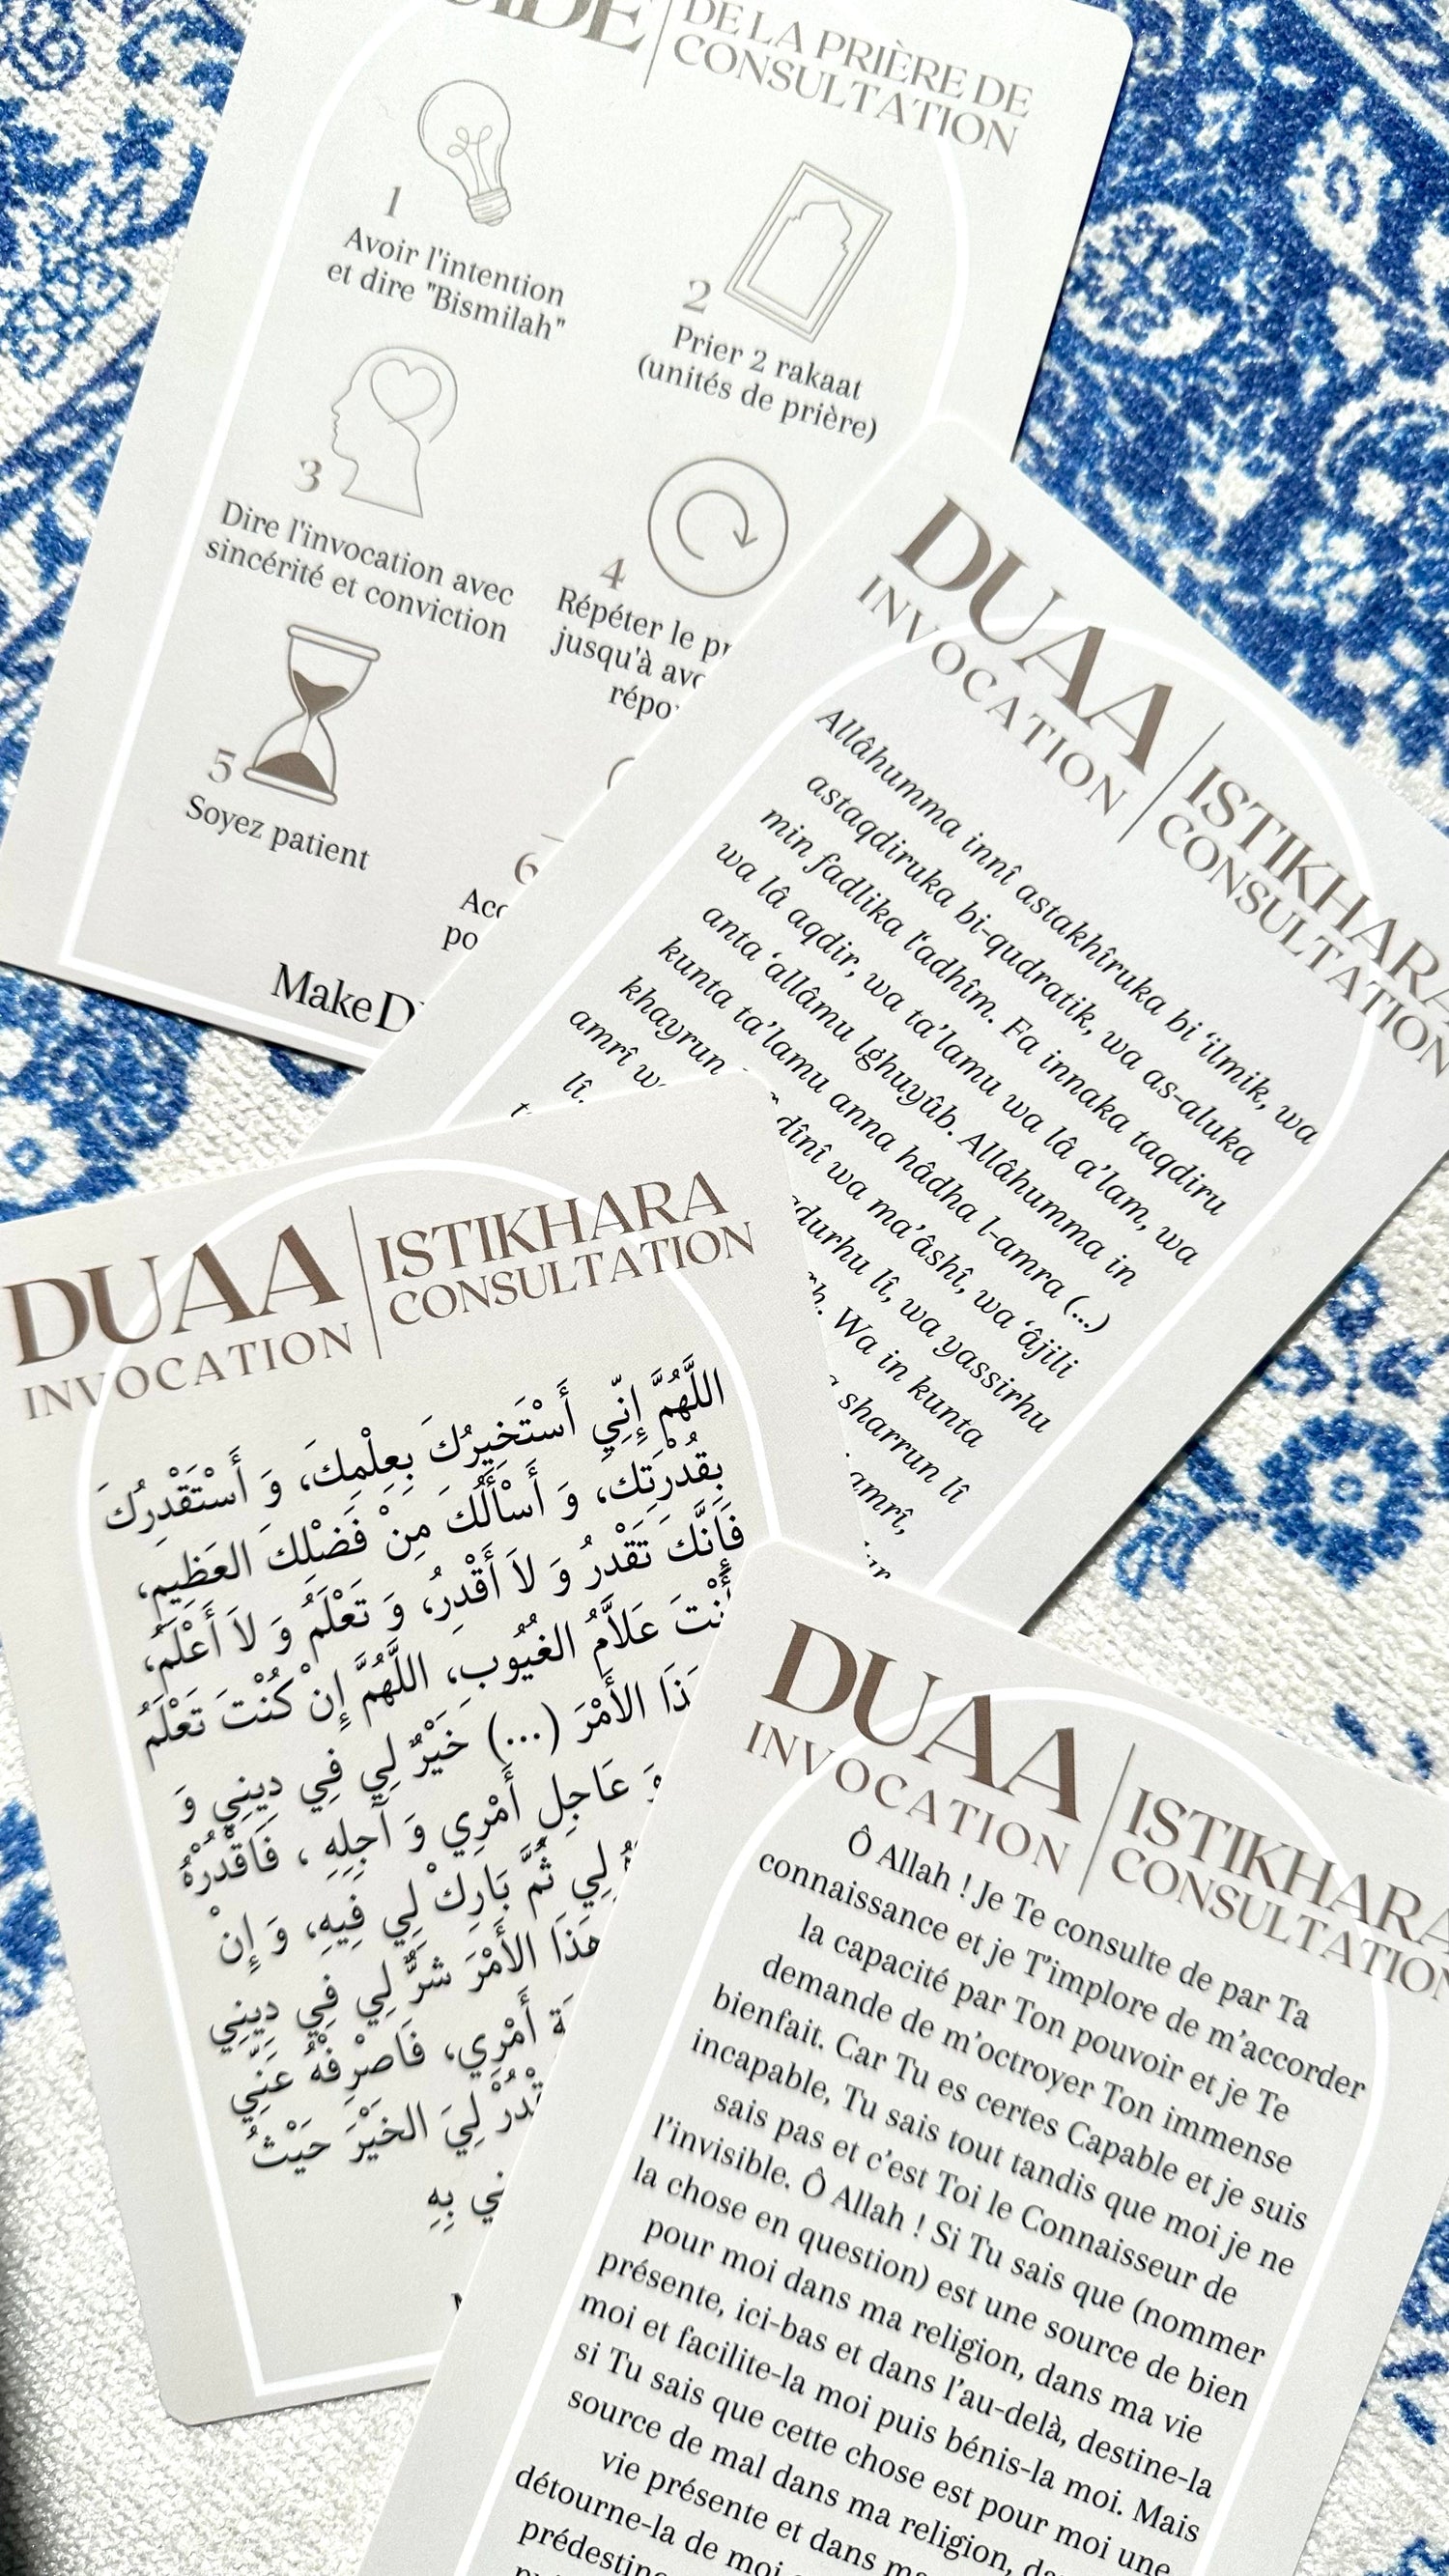 DE LA PRIÈRE DE
CONSULTATION
1
Avoir l'intention
et dire "Bismilah"
2
Prier 2 rakaat
(unités de prière)
3
Dire l'invocation avec
sincérité et conviction
4
Répéter le
jusqu'à
5
Soyez patient
6
Make
DUAA
INVOCATION
ISTIKHARA
CONSULTATION
Allâhumma innî astakhîruka bi ‘ilmik, wa
astaqdiruka bi-qudratik, wa as-aluka
min fadlika l‘adhîm. Fa innaka taqdiru
wa lâ aqdir, wa ta’lamu wa lâ a’lam, wa
anta ‘allâmu lghuyûb. Allâhumma in
kunta ta’lamu anna hâdha l-amra (...)
khayrun dînî wa ma’âshî, wa ‘âjili
amrî lî, wa yassirhu
lî. Wa in kunta
sharrun lî
amrî,
DUAA
INVOCATION
ISTIKHARA
CONSULTATION
اللَّهُمَّ إِنِّي أَسْتَخِيرُكَ بِعِلْمِكَ، وَ أَسْتَقْدِرُكَ
بِقُدْرَتِك، وَ أَسْأَلُكَ مِنْ فَضْلِكَ العَظِيمِ،
فَإِنَّكَ تَقْدرُ وَ لاَ أَقْدِرُ، وَ تَعْلَمُ وَ لاَ أَعْلَمُ،
أَنْتَ عَلاَّمُ الغيُوب، اللَّهُمَّ إِنْ كُنْتَ تَعْلَمُ
الأَمْرَ (...) خَيْرٌ لِي فِي دِينِي وَ
وَ عَاجِلِ أَمْرِي وَ آجِلِهِ ، فَاقْدُرْهُ
لِي ثُمَّ بَارِكْ لِي فِيهِ، وَ إِنْ
هَذَا الأَمْرَ شَرٌّ لِي فِي دِينِي
أَمْرِي، فَاصْرِفْهُ عَنِّي
لِيَ الخَيْرَ حَيْثُ
بِهِ
DUAA
INVOCATION
ISTIKHARA
CONSULTATION
Ô Allah ! Je Te consulte de par Ta
connaissance et je T’implore de m’accorder
la capacité par Ton pouvoir et je Te
demande de m’octroyer Ton immense
bienfait. Car Tu es certes Capable et je suis
incapable, Tu sais tout tandis que moi je ne
sais pas et c’est Toi le Connaisseur de
l’invisible. Ô Allah ! Si Tu sais que (nommer
la chose en question) est une source de bien
pour moi dans ma religion, dans ma vie
présente, ici-bas et dans l’au-delà, destine-la
moi et facilite-la moi puis bénis-la moi. Mais
si Tu sais que cette chose est pour moi une
source de mal dans ma religion,
vie présente et dans
détourne-la de moi